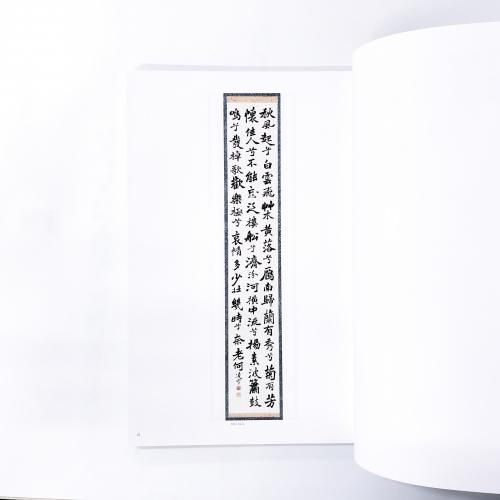 秋風起兮白雲飛艸木黃落兮鴈南歸蘭有秀兮菊有芳
懷佳人兮不能忘泛樓船兮濟汾河橫中流兮揚素波簫鼓
鳴兮發棹歌歡樂極兮哀情多少壯幾時兮奈老何